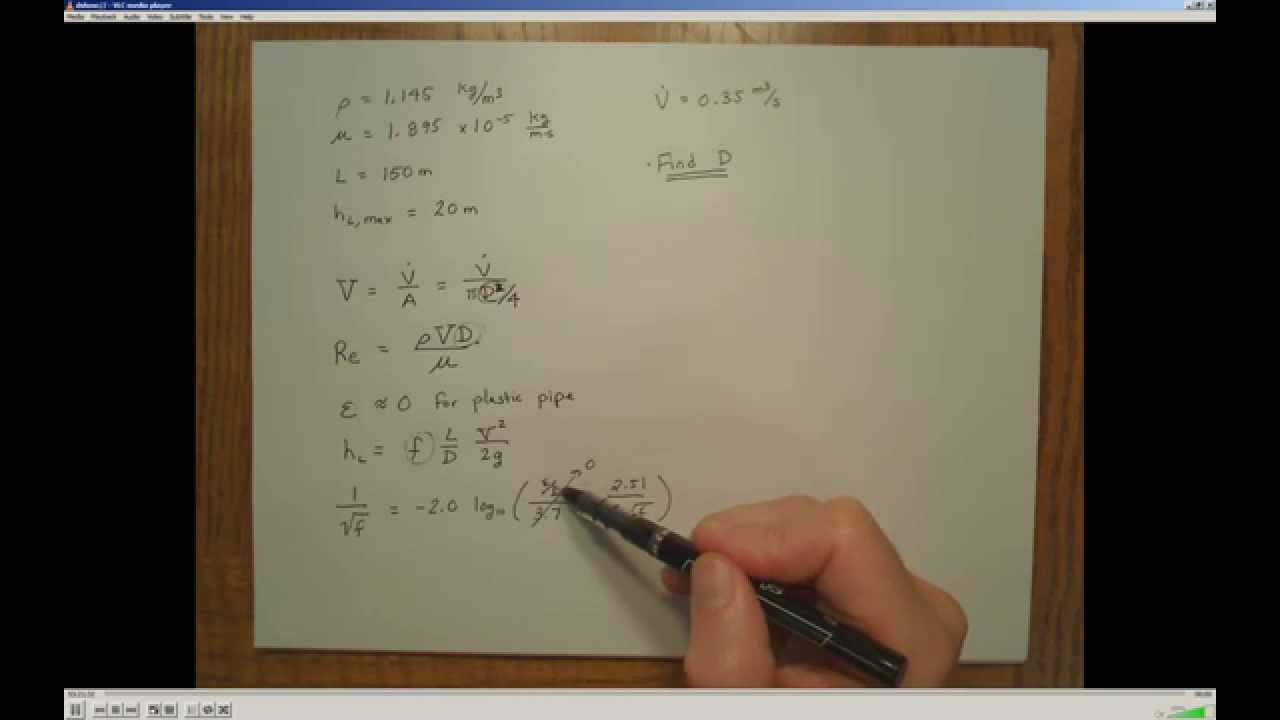 Media Playback Audio Video Subtitle Tools View Help
ρ = 1.145 kg/m³
μ = 1.895 ×10⁻⁵ kg/m·s
L = 150 m
h_L,max = 20 m
V̇ = 0.35 m³/s
· Find D
V = V̇/A = V̇/(πD²/4)
Re = ρVD/μ
ε ≈ 0 for plastic pipe
h_L = f L/D V²/2g
1/√f = -2.0 log₁₀ ( ε/D/3.7 → 0 2.51/ √f )